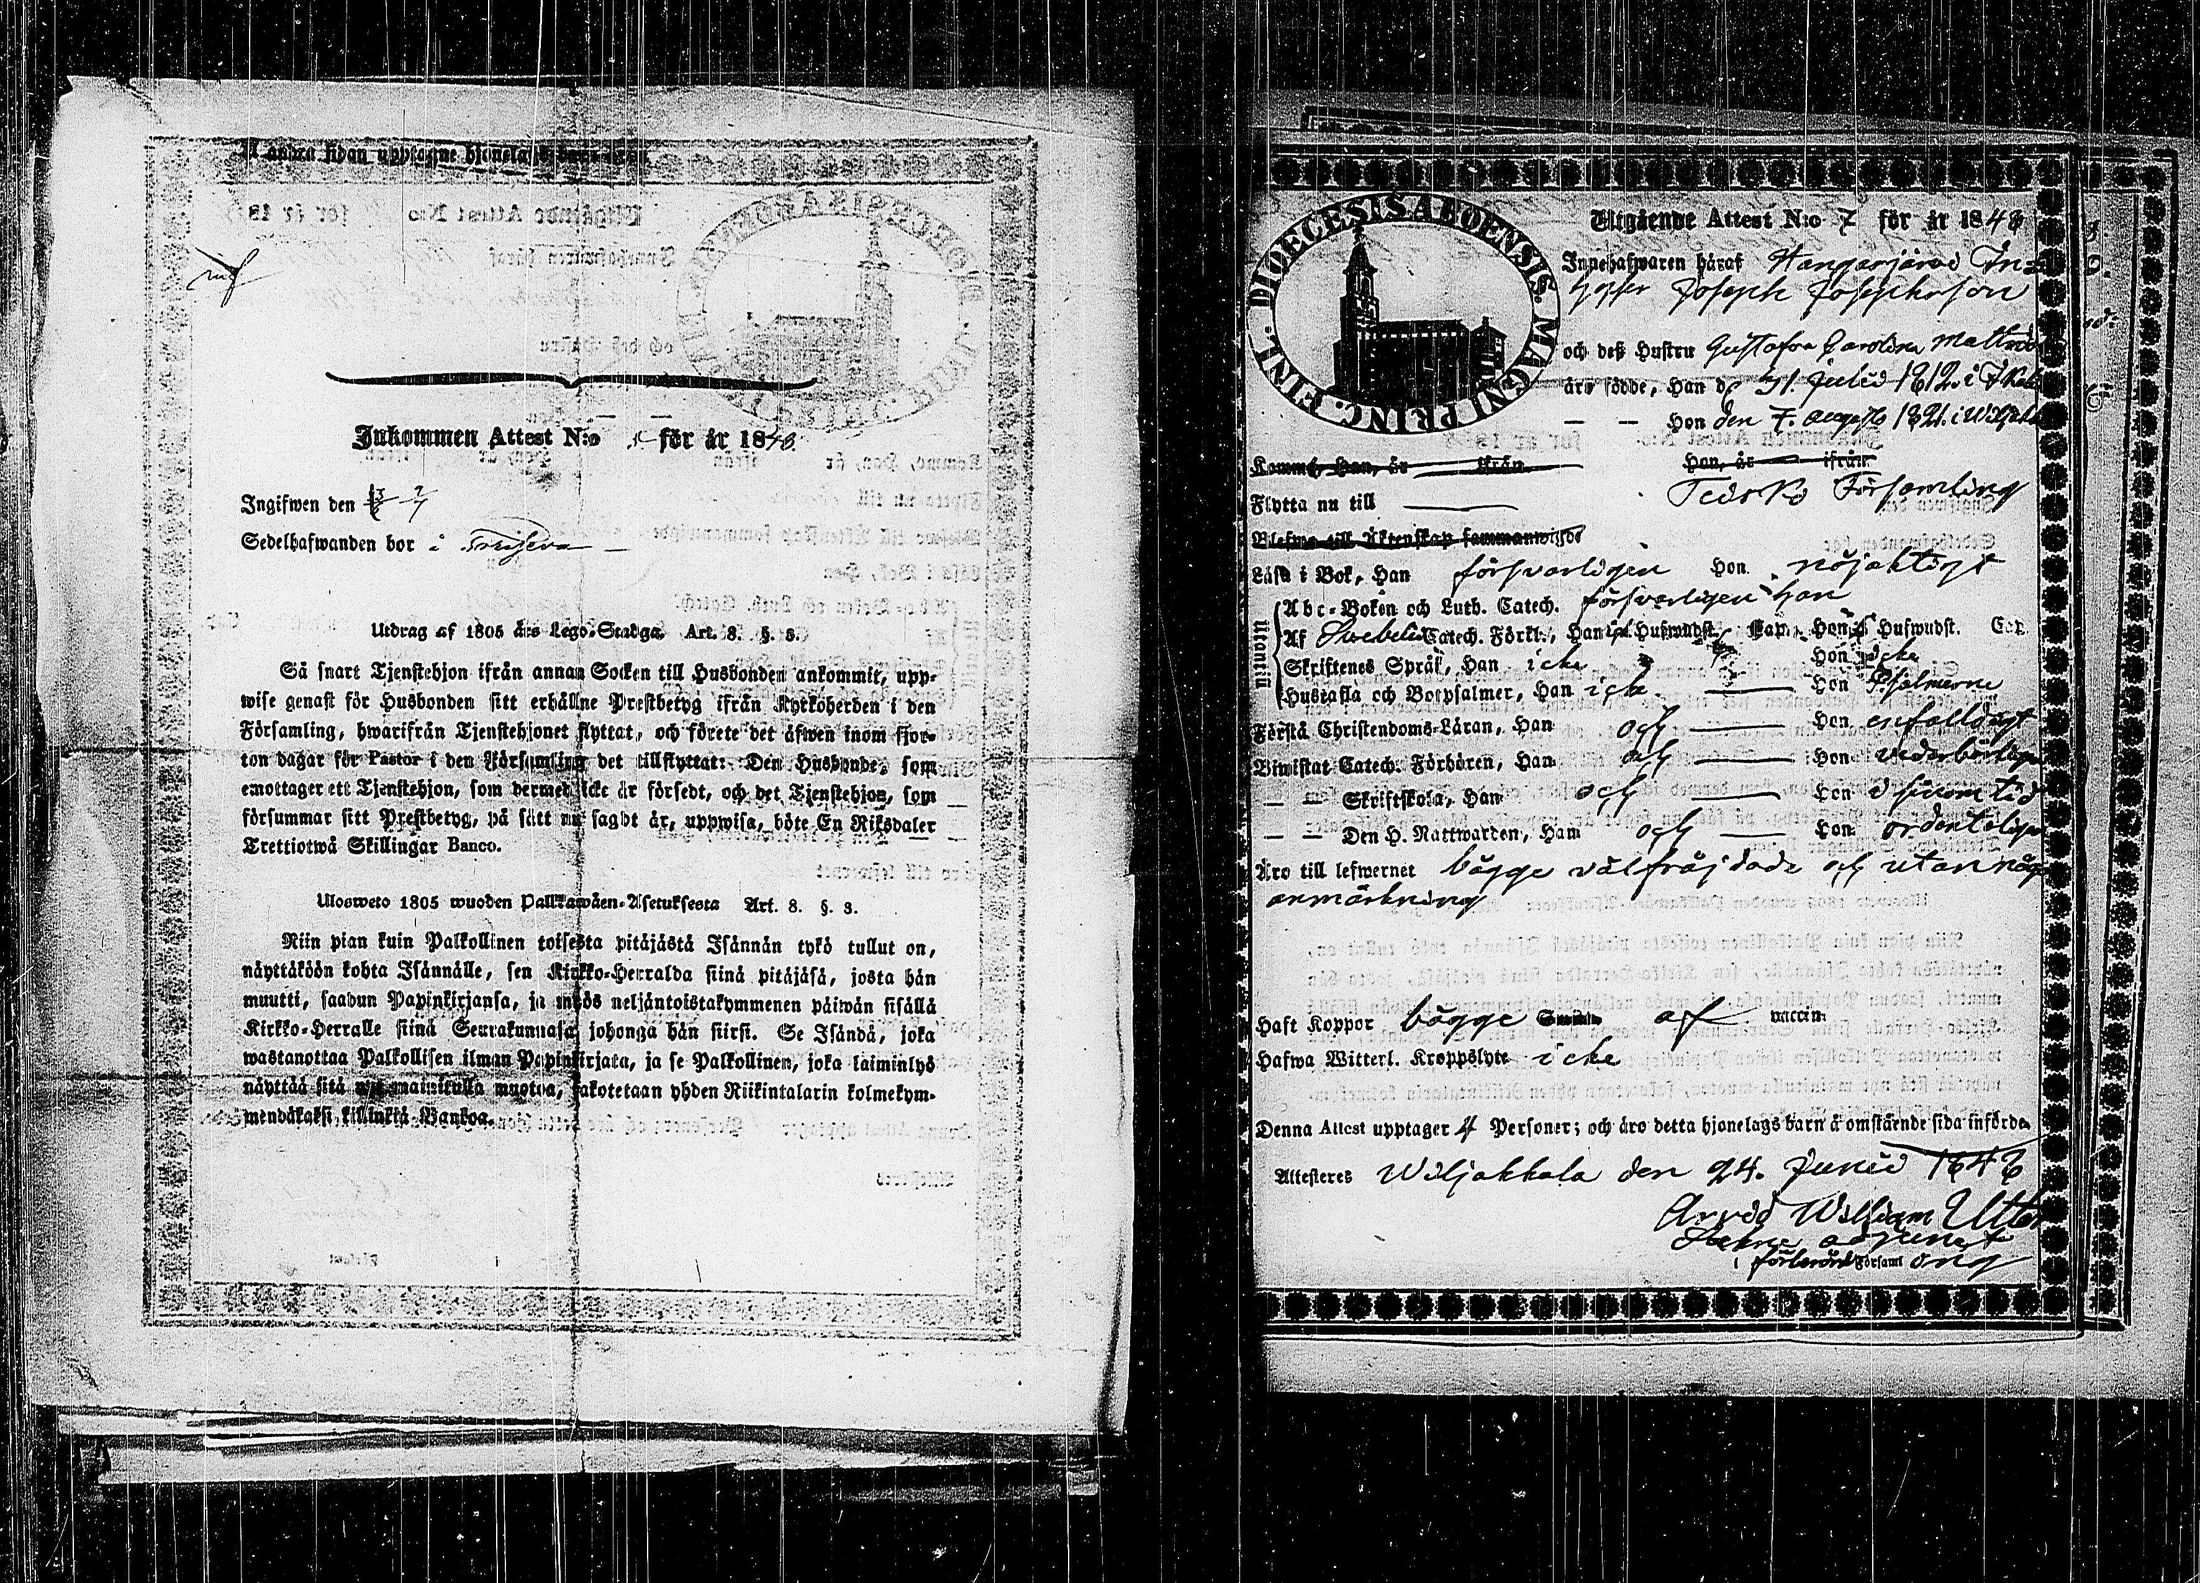 Å andra sidan upptagne hjonelags barn äro
Inkommen Attest N:o för år 1848.
Ingifwen den
Sedelhafwanden bor i
Utdrag af 1805 års Lego-Stadga. Art. 8. §. 3.
Så snart Tjenstehjon ifrån annan Socken till Husbonden ankommit, upp-
wise genast för Husbonden sitt erhållne Prestbetyg ifrån Kyrkoherden i den
Församling, hwarifrån Tjenstehjonet flyttat, och förete det äfwen inom fjor-
ton dagar för Pastor i den Församling det tillflyttat: Den Husbonde, som
emottager ett Tjenstehjon, som dermed icke är försedt, och det Tjenstehjon, som
försummar sitt Prestbetyg, på sätt nu sagdt är, uppwisa, böte En Riksdaler
Trettiotwå Skillingar Banco.
Ulosweto 1805 wuoden Palkkawäen-Asetuksesta Art. 8. §. 3.
Niin pian kuin Palkollinen toisesta pitäjästä Isännän tykö tullut on,
näyttäköön kohta Isännälle, sen Kirkko-Herralda siinä pitäjäsä, josta hän
muutti, saadun Papinkirjansa, ja myös neljäntoistakymmenen päiwän sisällä
Kirkko-Herralle siinä Seurakunnasa johonga hän siirsi. Se Isändä, joka
wastanottaa Palkollisen ilman Papinkirjata, ja se Palkollinen, joka laiminlyö
näyttää sitä nyt mainitulla muotoa, sakotetaan yhden Riikintalarin kolmekym-
mendäkaksi killinkiä Bankoa.
DIOECESIS ABOENSIS. MAGNI PRINC. FINL.
Utgående Attest N:o 7 för år 1848
Innehafwaren häraf Hangasjärvi In=
hyses Joseph Josephsson
och deß Hustru Gustafva Carolina Mattsd:r
äro födde, Han d. 31. Julii 1812. i
— — Hon den 7. Augusti 1821. i
Komme, Han, är ifrån Hon, är ifrån
Flytta nu till Teisko Församling
Blefwo till Äktenskap sammanwigde
Läsa i Bok, Han försvarligen Hon nöjaktigt
Utantill
Abc-Boken och Luth. Catech. försvarligen
Af Svebelii Catech. Förkl., Han Hufwudst. Cap. Hon Hufwudst. Cap.
Skriftenes Språk, Han icke Hon icke
Hustafla och Botpsalmer, Han icke — Hon Psalmerne
Förstå Christendoms-Läran, Han och — Hon enfaldigt
Biwistat Catech. Förhören, Han och — Hon vederbörligen
— — Skriftskola, Han och — Hon i sinom tid
— — Den H. Nattwarden, Han och — Hon ordenteligen
Äro till lefwernet bägge välfräjdade och utan någon
anmärkning
Haft Koppor bägge af vaccin.
Hafwa Witterl. Kroppslyte icke
Denna Attest upptager 4 Personer; och äro detta hjonelags barn å omstående sida införde.
Attesteres Wiljakkala den 24. Junii 1848
Arvid William
adjunct
i förberörde Församl ing